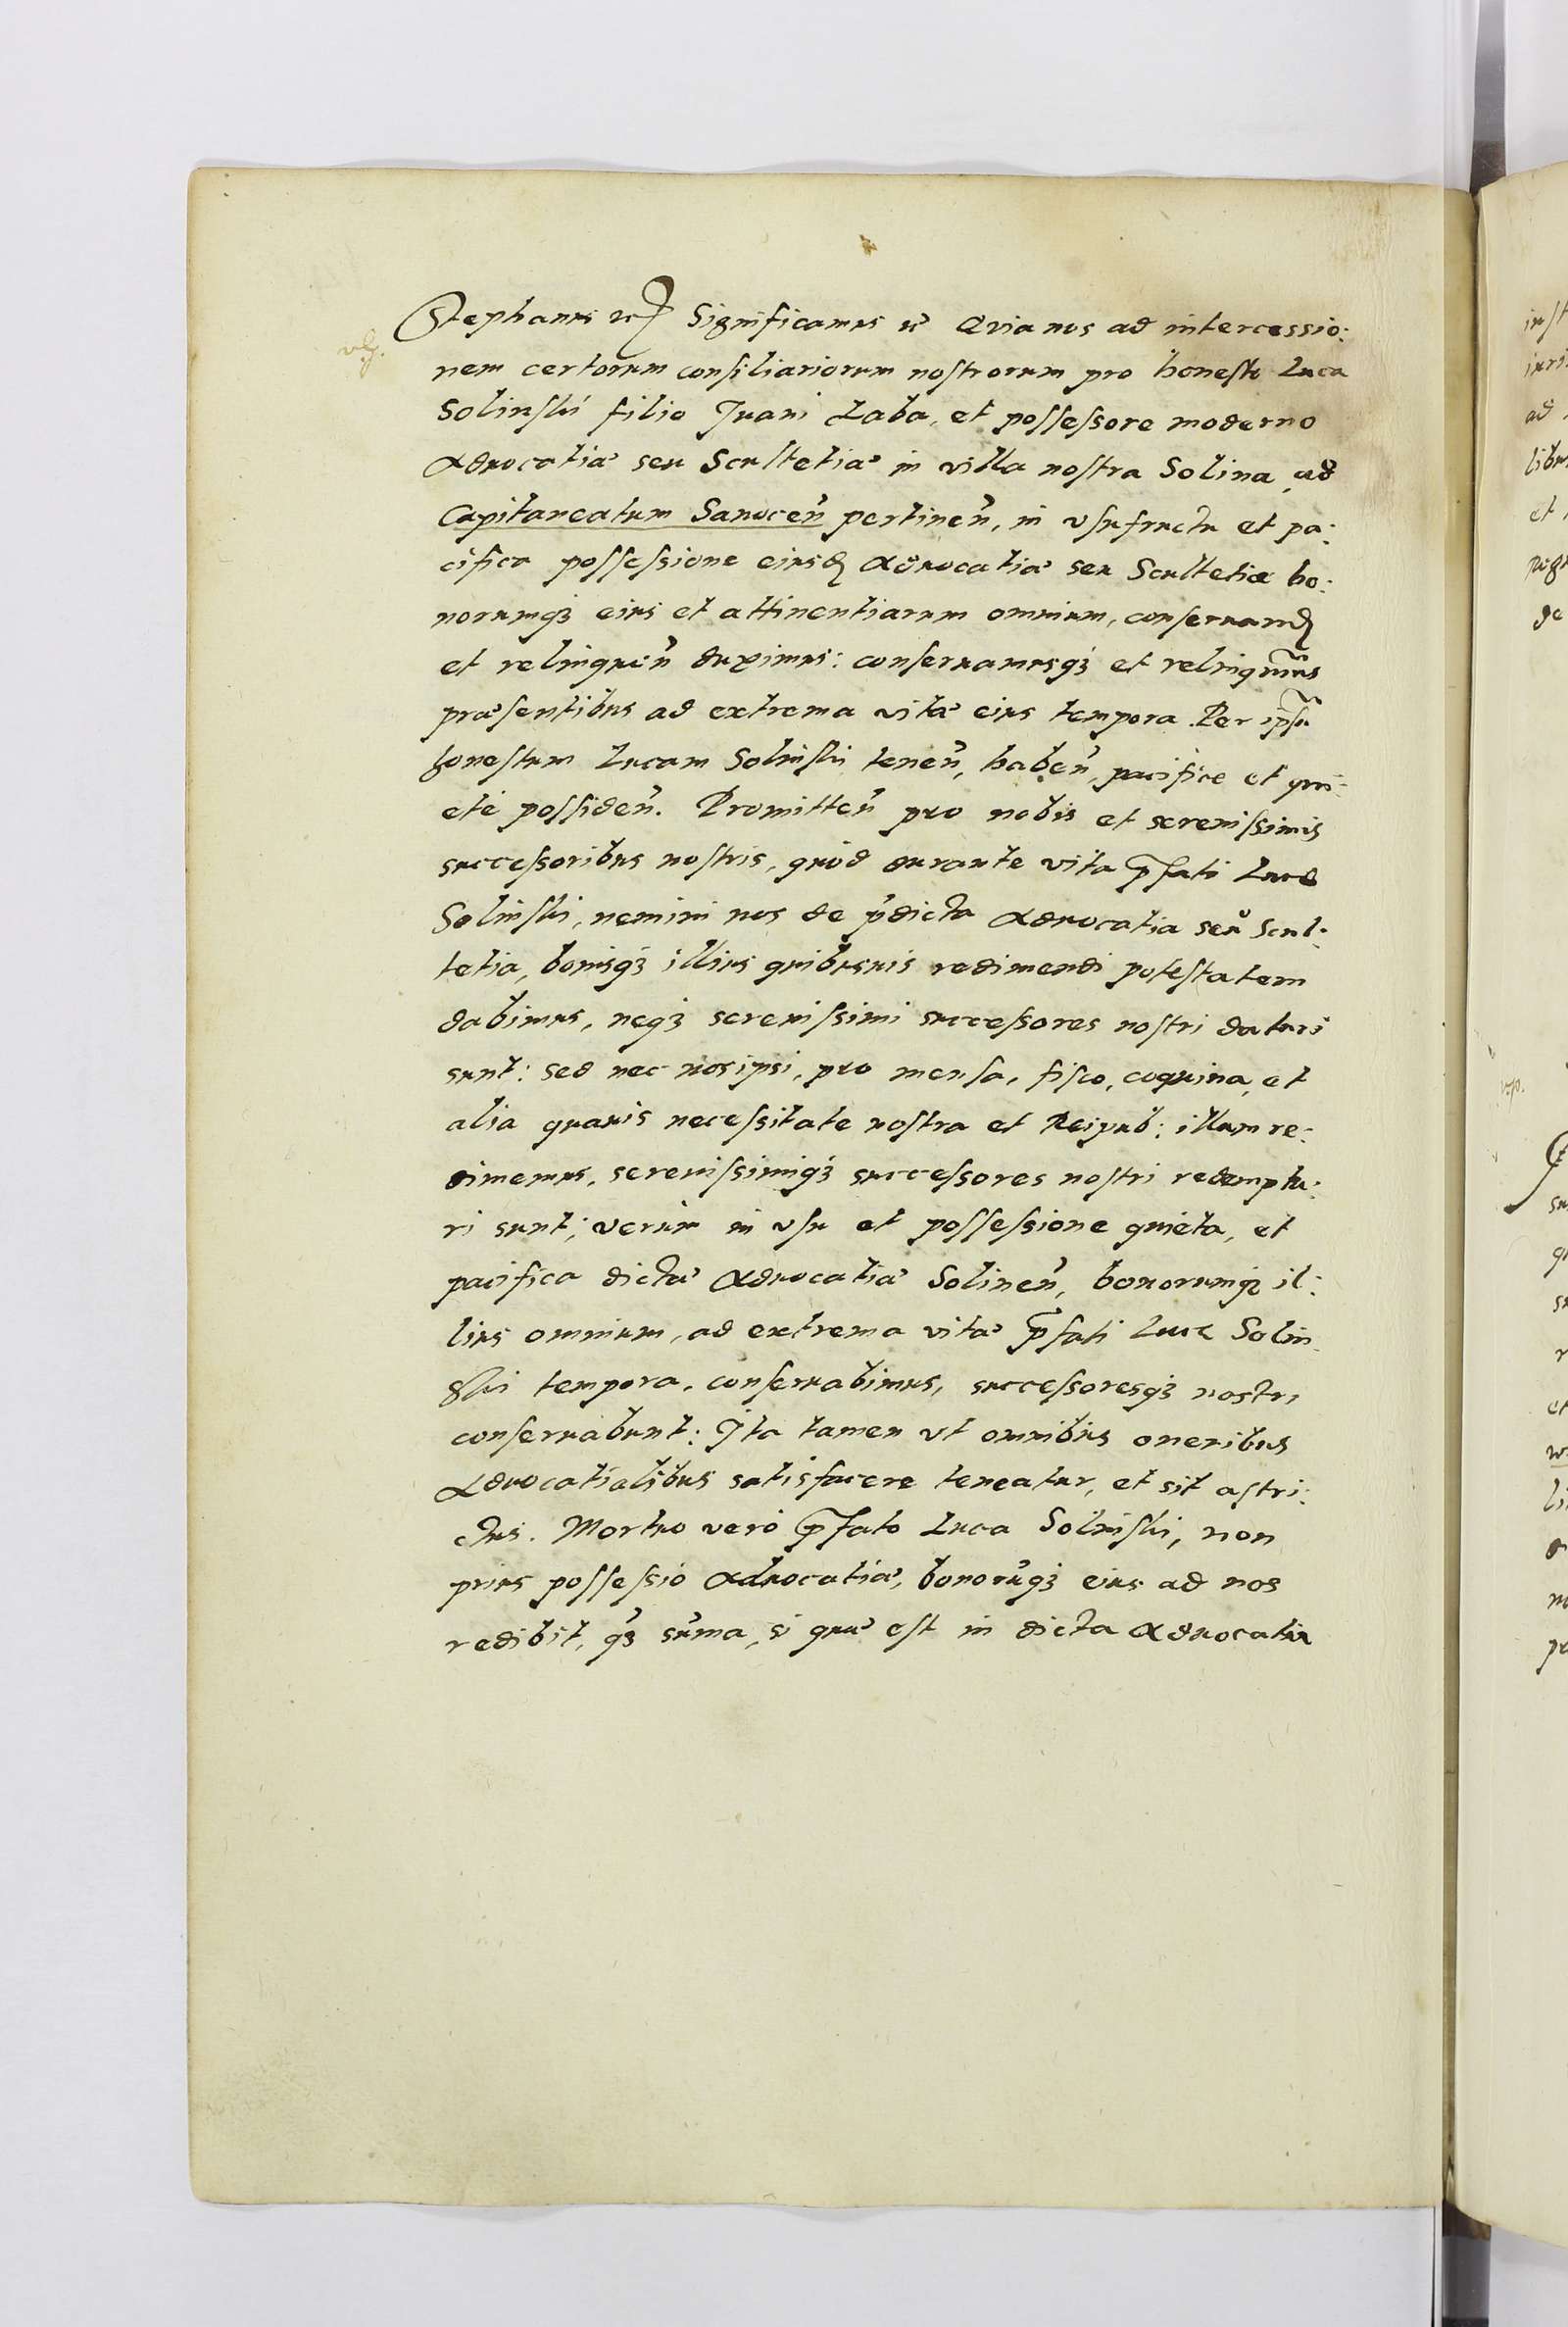 Stephanus etc Significamus etc Quia nos ad intercessio:
nem certorum consiliariorum nostrorum pro honesto Luca
Solinski filio Iuani Zaba, et possessore moderno
Aduocatiæ seu Scultetiæ in villa nostra Solina ad
Capitaneatum Sanocen̄ pertinen̄, in vsufructu et pa:
cifica possessione eiusd Aduocatiæ seu Scultetiæ bo:
norumq3 eius et attinentiarum omnium, conseruand
et relinquen̄ duximus: conseruamusq3 et relinquim̃us
præsentibus ad extrema vitæ eius tempora. Per ipsũ
honestum Lucam Solinski tenen̄, haben̄, pacifice et qui:
etè possiden̄. Promitten̄ pro nobis et serenissimis
successoribus nostris, quòd durante vita p̄fati Lucæ
Solinski, nemini nos de p̄dicta Aduocatia seu Scul:
tetia, bonisq3 illius quibusuis redimendi potestatem
dabimus, neq3 serenissimi successores nostri daturi
sunt: sed nec nos ipsi, pro mensa, fisco, coquina, et
alia quauis necessitate nostra et Reipub: illam re:
dimemus, serenissimiq3 successores nostri redemptu:
ri sunt; verùm in vsu et possessione quieta, et
pacifica dictæ Aduocatiæ Solinen̄, bonorumq3 il:
lius omnium, ad extrema vitæ p̄fati Lucæ Solin
ski tempora, conseruabimus, successoresq3 nostri
conseruabunt: Ita tamen vt omnibus oneribus
Aduocatialibus satisfacere teneatur, et sit astri:
ctus. Mortuo verò p̄fato Luca Solinski, non
prius possessio Aduocatiæ, bonorũq3 eius ad nos
redibit, q̃3 sũma, si quæ est in dicta Aduocatia